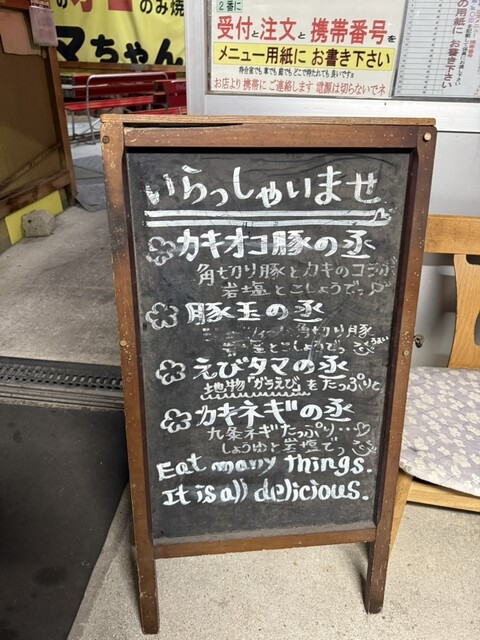 のみ焼
マちゃん
2番に
受付と注文と携帯番号を
メニュー用紙に お書き下さい
待合室でも車でも庭でもどこで待たれても良いですョ
お店より携帯にご連絡します 電源は切らないでネ
の用紙に
お書き下さい
いらっしゃいませ
カキオコ豚の丞
角切り豚とカキのコラボ
岩塩とこしょうでっ
豚玉の丞
角切り豚
岩塩とこしょうでっ
えびタマの丞
地物「ガラえび」をたっぷりと
カキネギの丞
九条ネギたっぷり・・
しょうゆと岩塩でっ
Eat many things.
It is all delicious.